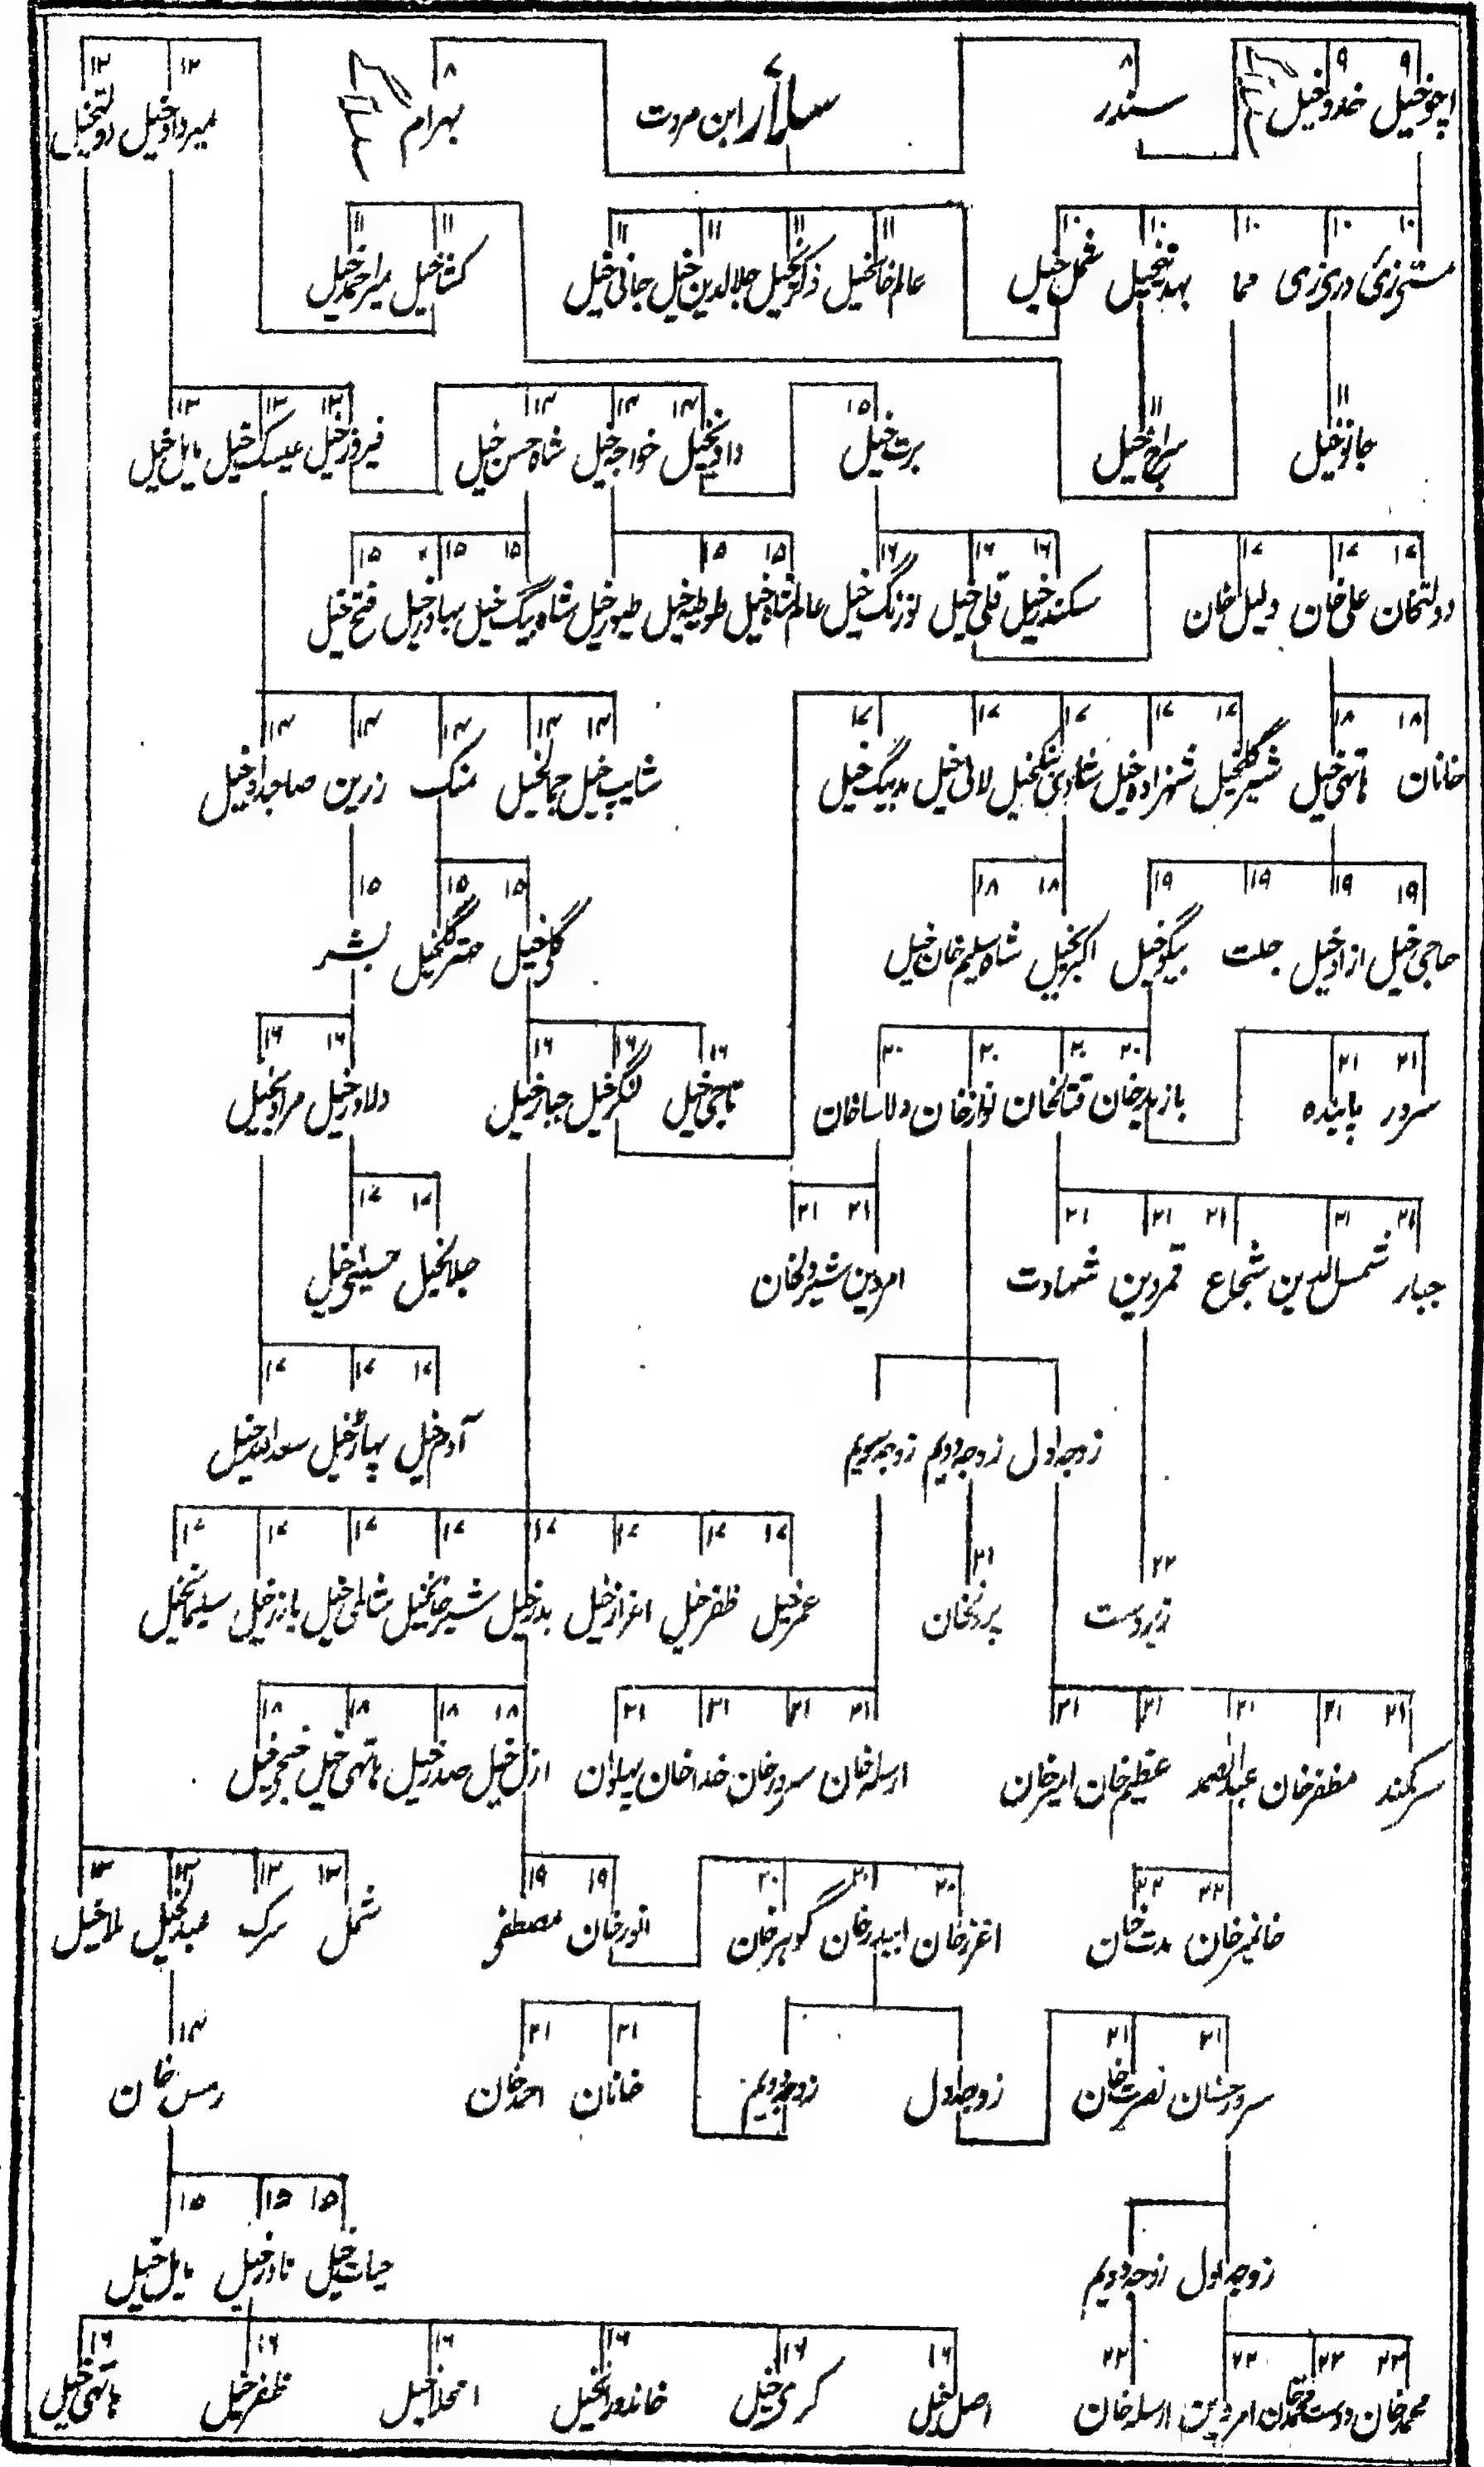 اچوخیل ۹ خدوخیل ۹ سندر ۸ سالار ابن مروت ۷ بهرام ۸ میردادخیل ۱۲ دولتخیل ۱۲
مستی زئی ۱۰ دری زی ۱۰ مما ۱۰ ۱۰ شمل خیل ۱۰ عالم خانخیل ۱۱ ذکرخیل ۱۱ جلالدین خیل ۱۱ جانی خیل ۱۱ کشاخیل ۱۱ میراحمدخیل ۱۱
جانوخیل ۱۱ سراج خیل ۱۱ برت خیل ۱۵ دادیخیل ۱۴ خواجه خیل ۱۴ شاه حسن خیل ۱۴ فیروزخیل ۱۳ عیسک خیل ۱۳ مایل خیل ۱۳
دولتخان ۱۷ علی خان ۱۷ دلیل خان ۱۷ سکندرخیل ۱۶ قلی خیل ۱۶ نورنگ خیل ۱۶ عالم شاه خیل ۱۵ طوطیه خیل ۱۵ طیورخیل شاه بیگ خیل ۱۵ بهادرخیل ۱۵ فتح خیل ۱۵
خانان ۱۸ هاتهی خیل ۱۸ شیرگلخیل ۱۷ شهزاده خیل ۱۷ شادی بیگخیل ۱۷ لالی خیل ۱۷ مدبیگ خیل ۱۷ شایب خیل ۱۴ جمالخیل ۱۴ منک ۱۴ زرین ۱۴ صاحبدادخیل ۱۴
حاجی خیل ۱۹ ازادخیل ۱۹ جلت ۱۹ بیگوخیل ۱۹ اکبرخیل ۱۸ شاه سلیم خان خیل ۱۸ گلی خیل ۱۵ ۱۵ بشر ۱۵
سرور ۲۱ پاینده ۲۱ بازیدخان ۲۰ قتالخان ۲۰ نوازخان ۲۰ دلاساخان ۲۰ تاجی خیل ۱۶ لنگرخیل ۱۶ جبارخیل ۱۶ دلاورخیل ۱۶ مرادیخیل ۱۶
جبار ۲۱ شمس الدین ۲۱ شجاع ۲۱ قمردین ۲۱ شهادت ۲۱ امردین ۲۱ شیردلخان ۲۱ جلالخیل ۱۷ حسینی خیل ۱۷
زوجه اول زوجه دویم زوجه سویم آدم خیل ۱۷ پهاڑخیل ۱۷ سعداللہ خیل ۱۷
زبردست ۲۲ پردلخان ۲۱ عمرخیل ۱۷ ظفرخیل ۱۷ اعزازخیل ۱۷ بدرخیل ۱۷ شیرخانخیل ۱۷ شاملی خیل ۱۷ بازرخیل ۱۷ سلیمانخیل ۱۷
سرکند ۲۱ مظفرخان ۲۱ عبدالصمد ۲۱ عظیم خان ۲۱ امیرخان ۲۱ ارسله خان ۲۱ سرورخان ۲۱ خداخان ۲۱ پهلوان ۲۱ ازل خیل ۱۸ صدرخیل ۱۸ هاتهی خیل ۱۸ خنجرخیل ۱۸
خانمیرخان ۲۲ مدت خان ۲۲ اعزخان ۲۰ ابیدرخان ۲۰ گوہرخان ۲۰ انورخان ۱۹ مصطفی ۱۹ شمل ۱۳ سرک ۱۳ عبدلخیل ۱۳ لملاخیل ۱۳
سرورخان ۲۱ نصرت خان ۲۱ زوجه اول زوجه دویم خانان ۲۱ احمدخان ۲۱ رمس خان ۱۴
زوجه اول زوجه دویم حیات خیل ۱۵ نادرخیل ۱۵ مایل خیل ۱۵
محمدخان ۲۳ دوست محمدخان ۲۳ امردین ۲۳ ارسله خان ۲۳ اصل خیل ۱۶ کرمی خیل ۱۶ خاندورانخیل ۱۶ ۱۶ ظفرخیل ۱۶ هاتهی خیل ۱۶